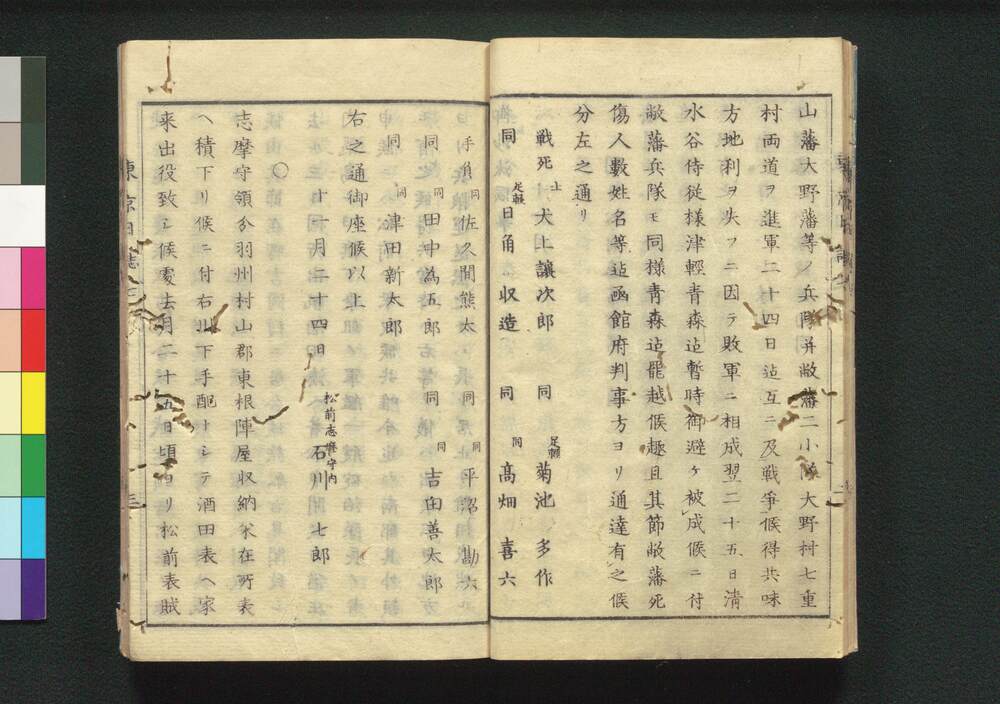 山藩大野藩等ノ兵隊并敝藩二小隊大野村七重
村両道ヲ進軍二十四日迠互ニ及戦爭候得共味
方地利ヲ失フニ因テ敗軍ニ相成翌二十五日清
水谷侍従様津輕青森迠暫時御避ケ被成候ニ付
敝藩兵隊モ同様青森迠罷越候趣且其節敝藩死
傷人數姓名等迠函館府判事方ヨリ通達有之候
分左之通リ
戦死 士 犬上讓次郎 同 足軽 菊池多作
同 足軽 日角収造 同 同 髙畑喜六
手負 同 佐久間熊太 同 同 平沼勘六
同 同 田中為五郎 同 同 吉田善太郎
同 同 津田新太郎
右之通御座候以上
十一月二十四日 松前志摩守内 石川七郎
〇
志摩守領分羽州村山郡東根陣屋収納米在所表
ヘ積下リ候ニ付右川下手配トシテ酒田表ヘ家
来出役致シ候處去月二十五日頃ヨリ松前表賊
東京日誌